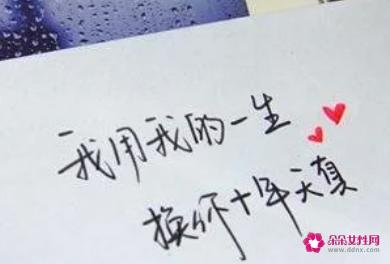 我用我的一生
换你十年天真
朵朵女性网
www.ddnx.com